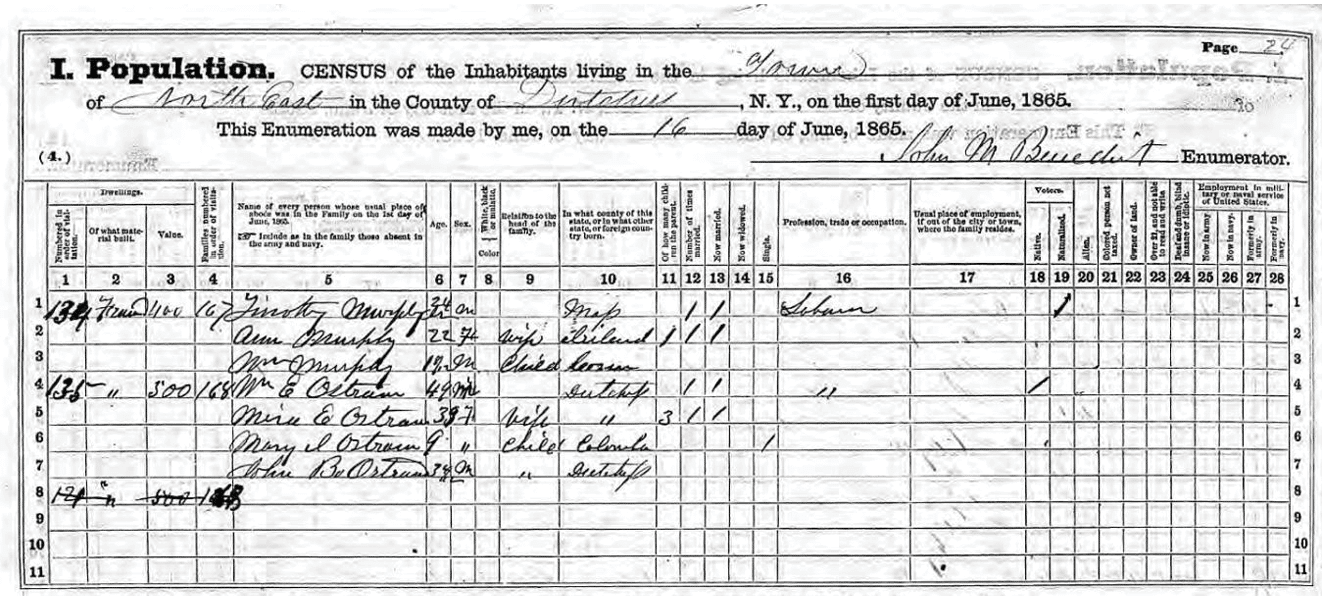 Page 24
I. Population. CENSUS of the Inhabitants living in the Town
of North East in the County of Dutchess, N. Y., on the first day of June, 1865.
This Enumeration was made by me, on the 16 day of June, 1865.
(4.) John M Benedict Enumerator.
Dwellings. Voters. Employment in military or naval service of United States.
Numbered in order of visitation. Of what material built. Value. Families numbered in order of visitation. Name of every person whose usual place of abode was in the Family on the 1st day of June, 1865. Include as in the family those absent in the army and navy. Age. Sex. White, black or mulatto. Color Relation to the head of the family. In what county of this state, or in what other state, or foreign country born. Of how many children the parent. Number of times married. Now married. Now widowed. Single. Profession, trade or occupation. Usual place of employment, if out of the city or town, where the family resides. Native. Naturalized. Alien. Colored person not taxed. Owner of land. Over 21, and not able to read and write Deaf and dumb, blind insane or idiotic. Now in army Now in navy. Formerly in army. Formerly in navy.
1 2 3 4 5 6 7 8 9 10 11 12 13 14 15 16 17 18 19 20 21 22 23 24 25 26 27 28
1 134 Frame 400 167 Timothy Murphy M 1 1 1 1
2 Ann Murphy 22 F Wife Ireland 1 1 1 2
3 Wm Murphy M Child 3
4 135 " 500 168 Wm E Ostrom 49 M Dutchess 1 1 " 1 4
5 E Ostrom 39 F Wife " 3 1 1 5
6 Mary Ostrom 9 " Child Columba 1 6
7 John Ostrom M " Dutchess 7
8 " 500 8
9 9
10 10
11 11